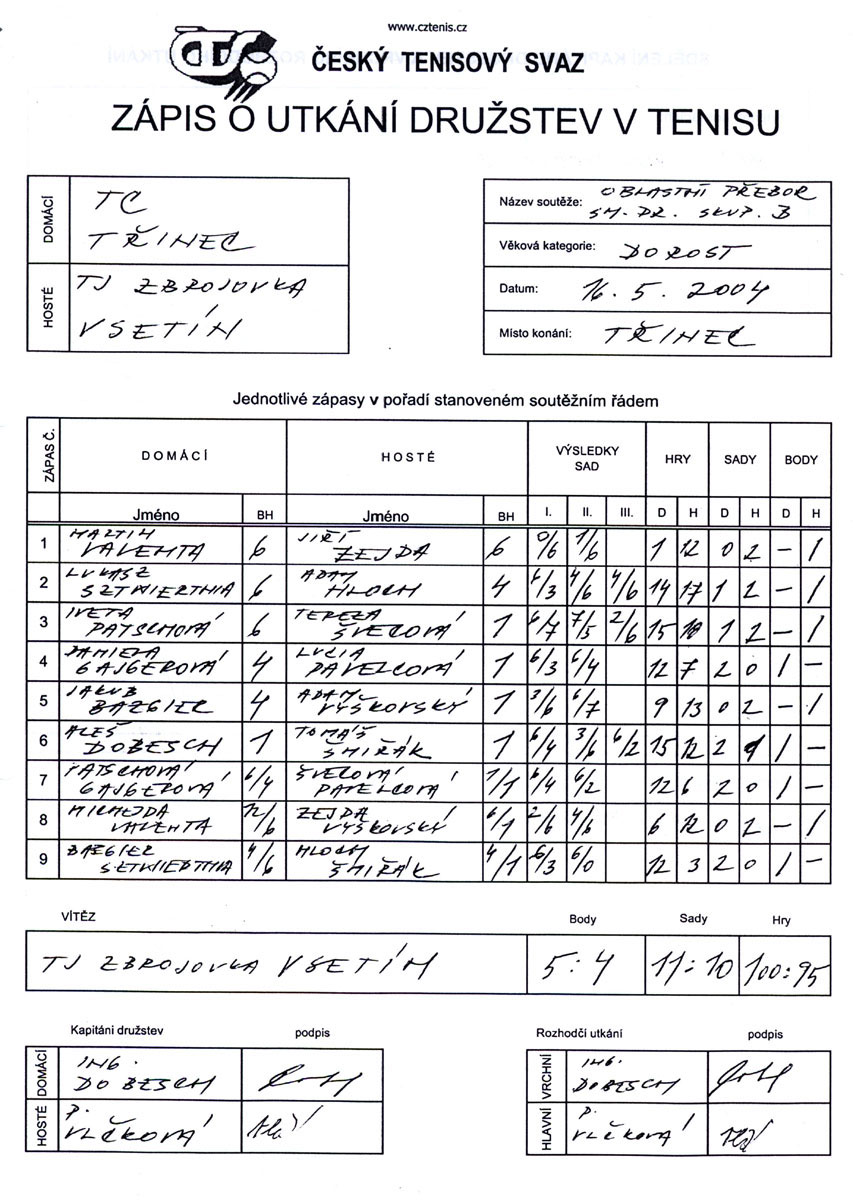 www.cztenis.cz
ČTS
ČESKÝ TENISOVÝ SVAZ
ZÁPIS O UTKÁNÍ DRUŽSTEV V TENISU
DOMÁCÍ
TC
TŘINEC
HOSTÉ
TJ ZBROJOVKA
VSETÍN
Název soutěže: OBLASTNÍ PŘEBOR
SM. DR. SKUP. B
Věková kategorie: DOROST
Datum: 16. 5. 2004
Místo konání: TŘINEC
Jednotlivé zápasy v pořadí stanoveném soutěžním řádem
ZÁPAS Č. DOMÁCÍ HOSTÉ VÝSLEDKY SAD HRY SADY BODY
Jméno BH Jméno BH I. II. III. D H D H D H
1 MARTIN VALENTA 6 JIŘÍ ZEJDA 6 0/6 1/6 1 12 0 2 – 1
2 LUKASZ SZTWIERTNIA 6 ADAM HLOCH 4 6/3 4/6 4/6 14 17 1 2 – 1
3 IVETA PATSCHOVÁ 6 TEREZA ŠVECOVÁ 1 6/7 7/5 2/6 15 18 1 2 – 1
4 DANIELA GAJGEROVÁ 4 LUCIA PAVELCOVÁ 1 6/3 6/4 12 7 2 0 1 –
5 JAKUB BAZGIER 4 ADAM VÝŠKOVSKÝ 1 3/6 6/7 9 13 0 2 – 1
6 ALEŠ DOBESCH 1 TOMÁŠ ŠMIŘÁK 1 6/4 3/6 6/2 15 12 2 1 1 –
7 PATSCHOVÁ GAJGEROVÁ 6/4 ŠVECOVÁ PAVELCOVÁ 1/1 6/4 6/2 12 6 2 0 1 –
8 MICHEJDA VALENTA 12/6 ZEJDA VÝŠKOVSKÝ 6/1 2/6 4/6 6 12 0 2 – 1
9 BAZGIER SZTWIERTNIA 4/6 HLOCH ŠMIŘÁK 4/1 6/3 6/0 12 3 2 0 1 –
VÍTĚZ Body Sady Hry
TJ ZBROJOVKA VSETÍN 5:4 11:10 100:95
Kapitáni družstev podpis Rozhodčí utkání podpis
DOMÁCÍ ING. DOBESCH
HOSTÉ P. VLČKOVÁ
VRCHNÍ ING. DOBESCH
HLAVNÍ P. VLČKOVÁ